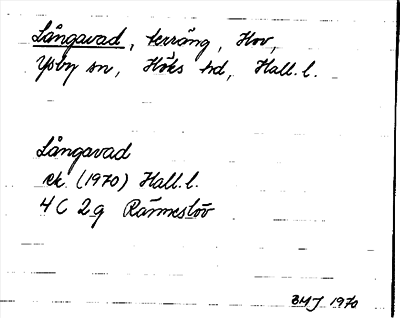 Långavad, terräng, Hov,
Ysby sn, Höks hd, Hall. l.
Långavad
ek. (1970) Hall. l.
4 C 2 g Ränneslöv
BMJ 1970